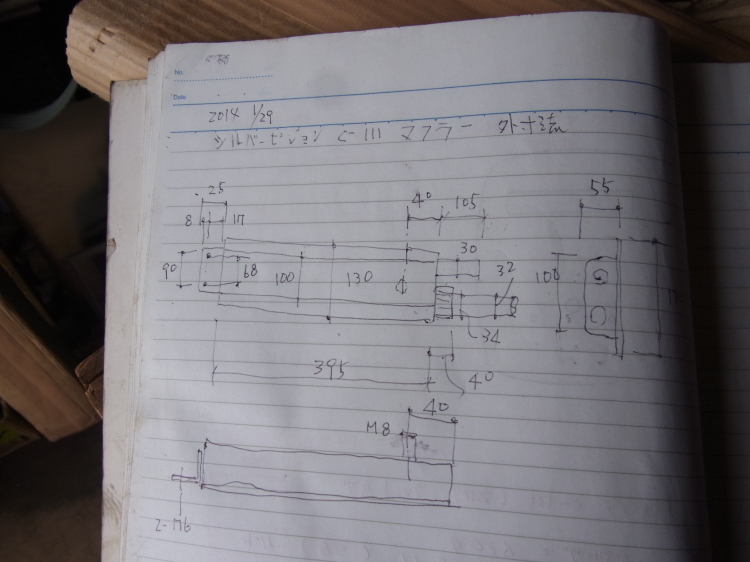 No.
Date
2014 1/29
シルバーピジョン C-111 マフラー 外寸法
25
40
105
55
8
17
30
32
90
68
100
130
¢
100
34
395
40
40
M8
2-M6